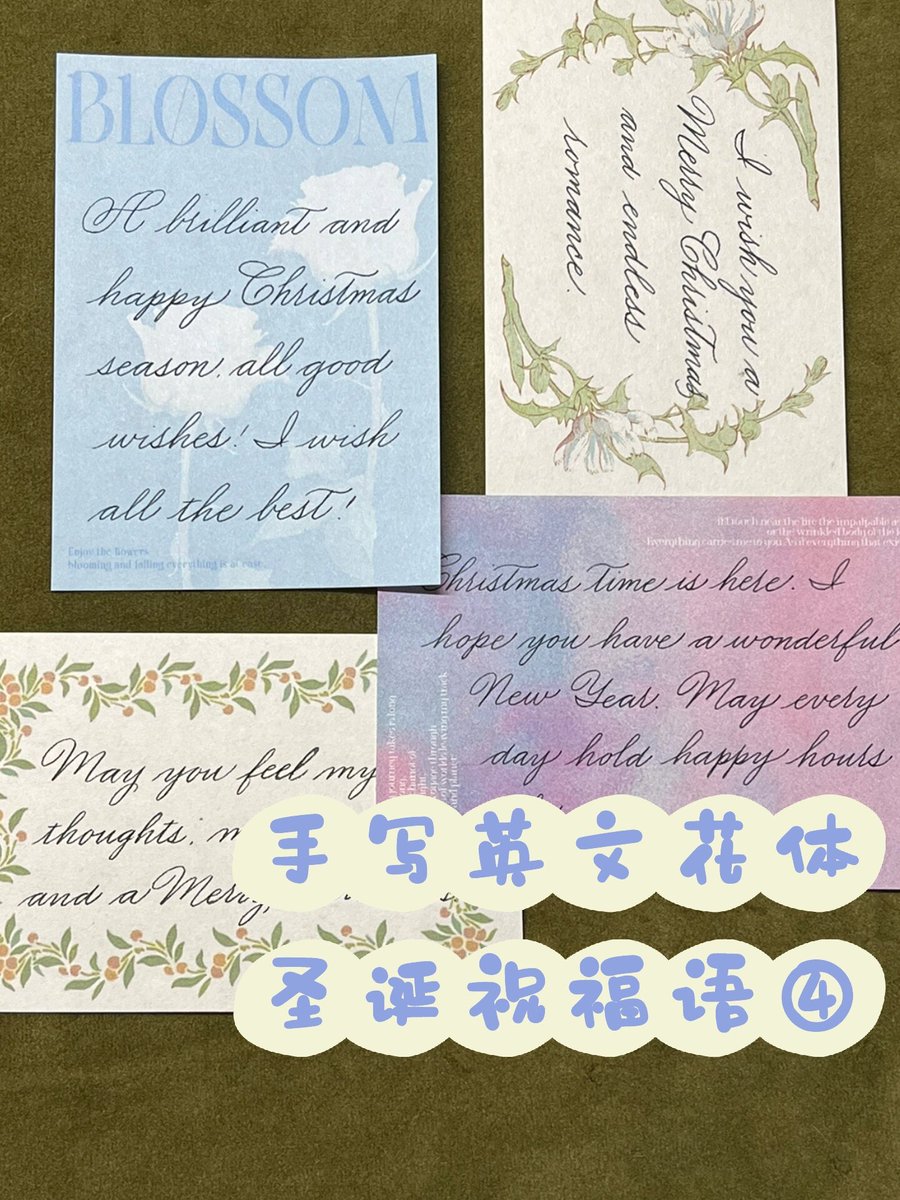 BLOSSOM
A brilliant and
happy Christmas
season, all good
wishes! I wish
all the best!
Enjoy the flowers
blooming and falling everything is at ease.
I wish you a
Merry Christmas
and endless
romance.
If I touch near the fire the impalpable
or the wrinkled body of the
Everything carries me to you, As if everything that
Christmas time is here. I
hope you have a wonderful
New Year. May every
day hold happy hours
May you feel my
thoughts,
and a Merry
手写英文花体
圣诞祝福语④